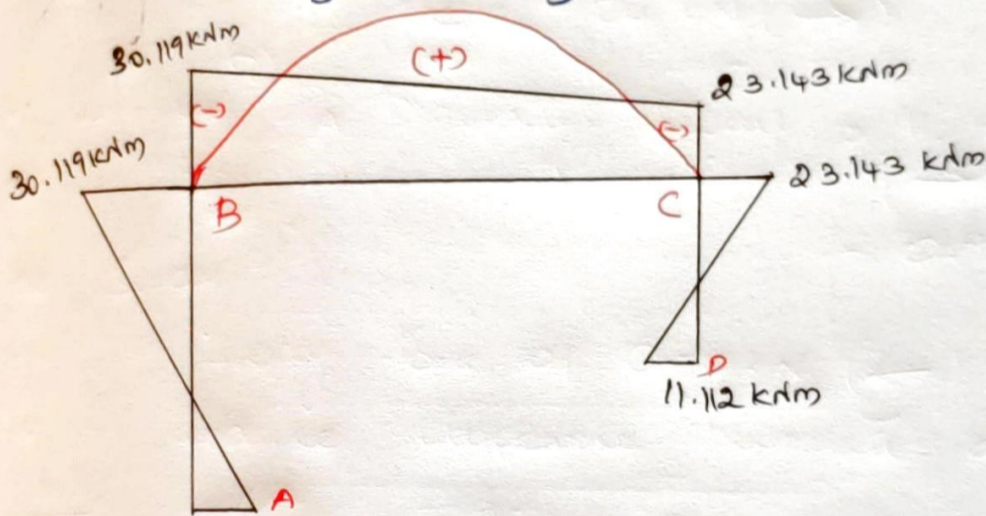 30.119 kNm
(+)
23.143 kNm
(-)
(-)
30.119 kNm
23.143 kNm
B
C
D
11.112 kNm
A